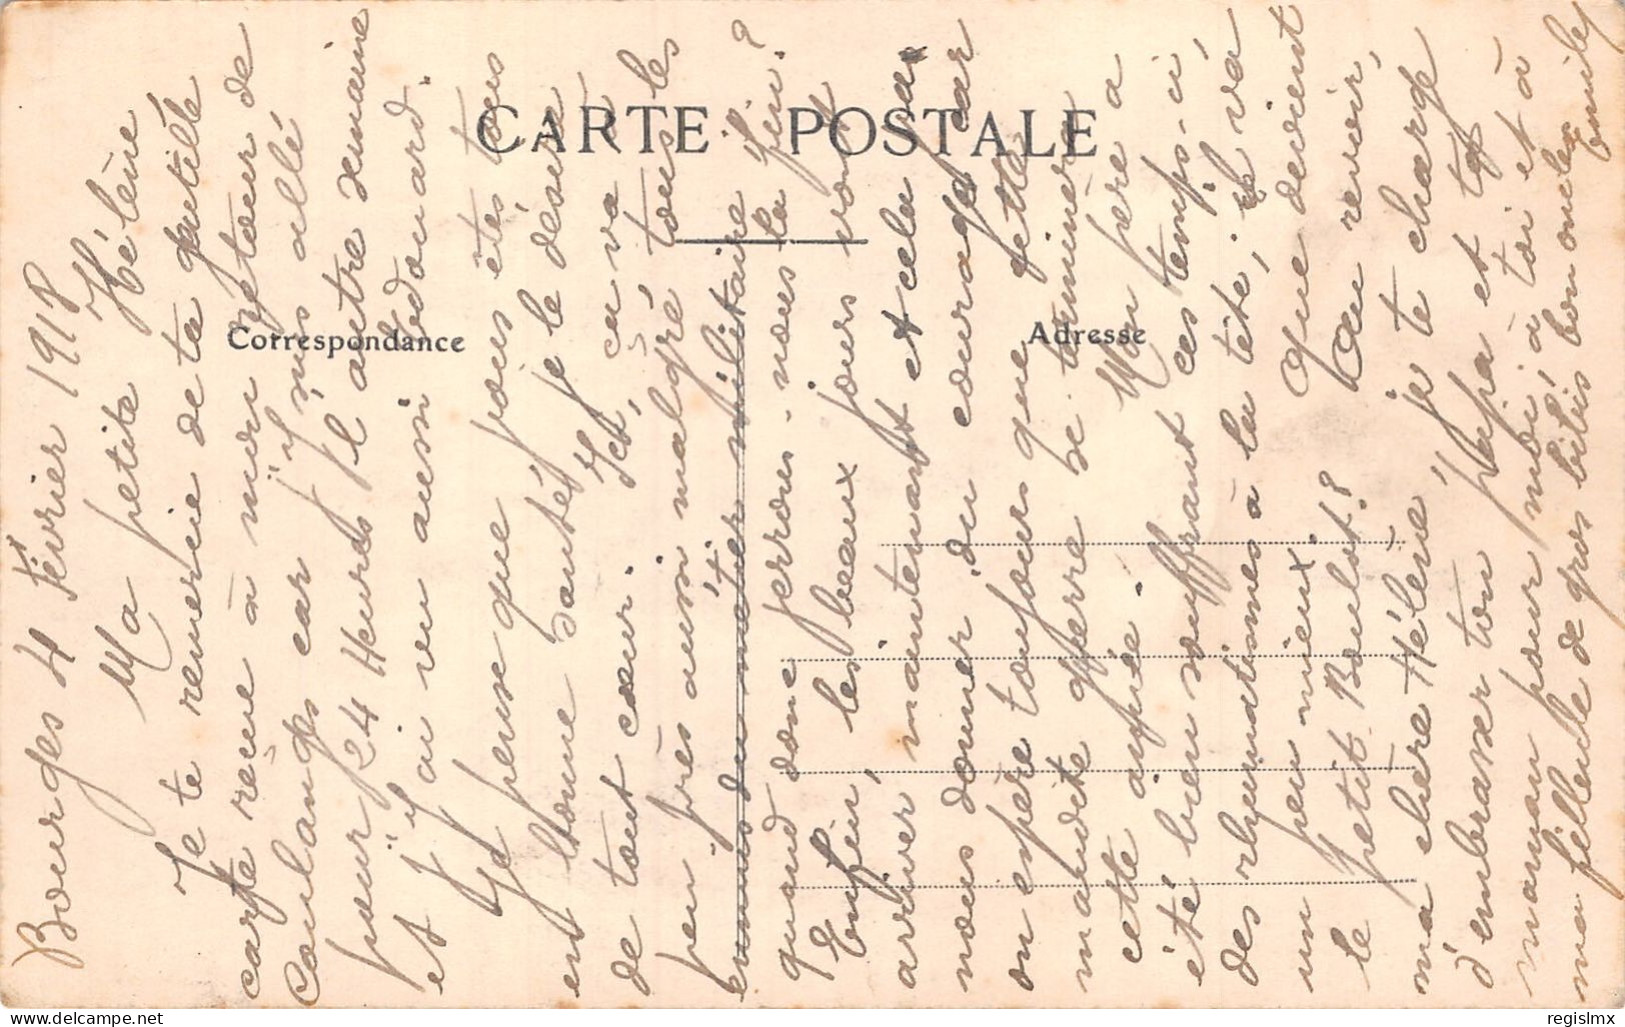 CARTE POSTALE
Correspondance
Adresse
Bourges 4 Février 1918
Ma petite Hélène
Je te remercie de ta gentille
carte reçue à mon retour de
Coulanges car j'y suis allé
pour 24 Heures l'autre semaine
et j'ai vu aussi Edouard.
Je pense que vous êtes tous
en bonne santé, je le désire
de tout cœur. Ici, ça va à
peu près aussi malgré tous les
ennuis du métier militaire
quand donc verrons-nous la fin?
Enfin, les beaux jours vont
arriver maintenant et cela va
nous donner du courage car
on espère toujours que cette
maudite guerre se terminera
cette année. Mon père a
été bien souffrant ces temps-ci
des rhumatismes à la tête, il va
un peu mieux. Que devient
le petit Boulot? Au revoir,
ma chère Hélène, je te charge
d'embrasser ton papa et ta
maman pour moi, à toi et à
ma filleule de gros bibis bon oncle
Emile
regislmx
delcampe.net